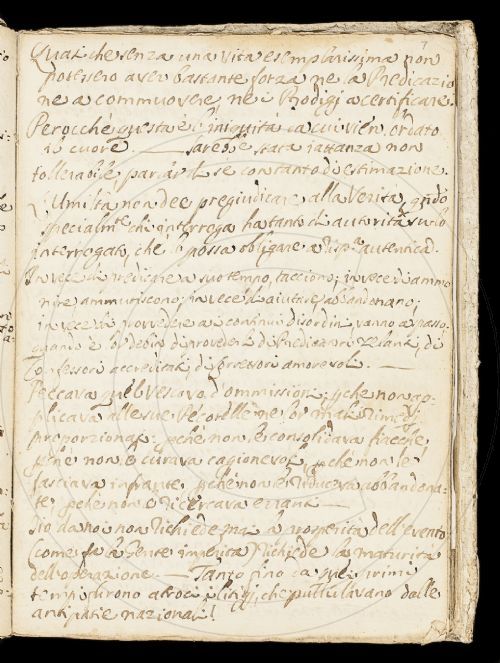 7
Quasi che senza una vita esemplarissima non
potessero aver bastante forza ne la Predicazio
ne a commuovere, ne i Prodigj a certificare.
Perocchè questa è l'iniquità da cui vien orbato
il cuore. — sarebbe stata jattanza non
tollerabile parlar di se con tanto di estimazione.
L'Umiltà non dee pregiudicare alla Verità, qndo
specialmte chi interroga ha tanto di autorità su lo
interrogato, che lo possa obligare a rispta autentica.
In vece di predicare a suo tempo, tacciono; in vece di ammo
nire ammutiscono; in vece di aiutare, abbandonano;
in vece di provvedere a i continui disordini, vanno a spasso.
quando è l'obligo di provederli di Predicatori zelanti, di
Confessori accreditati, di Pretessori amorevoli. —
Peccava quel Vescovo d'ommissione, pche non ap-
plicava alle sue Pecorelle ne' lor mali rimedj
proporzionati: pchè non le consolidava fiacche,
pchè non le curava cagionevoli, pchè non le
fasciava infrante, pchè non le riduceva abbandona-
te, pchè non le ricercava erranti —
Iddio da noi non richiede mai la prosperità dell'evento
(come fa la Gente imperita) richiede la maturità
dell'operazione. — Tanto fino da quei primi
tempi furono atroci i litigj, che pullulavano dalle
antipatie nazionali!